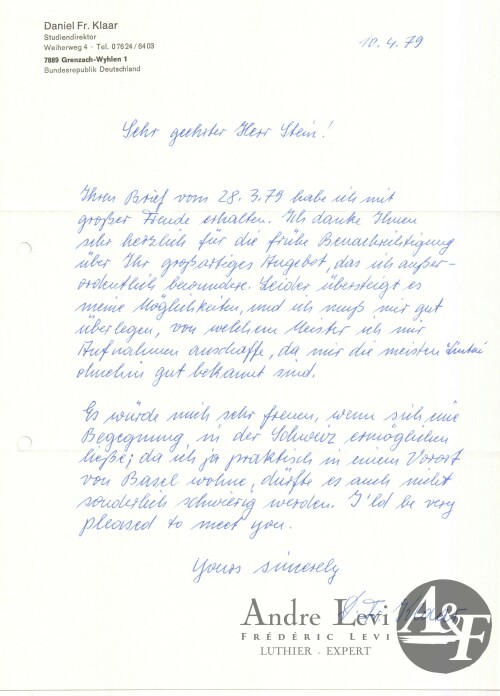 Daniel Fr. Klaar
Studiendirektor
Weiherweg 4 - Tel. 07624/6403
7889 Grenzach-Wyhlen 1
Bundesrepublik Deutschland
10.4.79
Sehr geehrter Herr Stein!
Ihren Brief vom 28.3.79 habe ich mit
großer Freude erhalten. Ich danke Ihnen
sehr herzlich für die frühe Benachrichtigung
über Ihr großartiges Angebot, das ich außer-
ordentlich bewundere. Leider übersteigt es
meine Möglichkeiten, und ich muß mir gut
überlegen, von welchem Meister ich mir
Aufnahmen anschaffe, da mir die meisten
ohnehin gut bekannt sind.
Es würde mich sehr freuen, wenn sich eine
Begegnung in der Schweiz ermöglichen
ließe; da ich ja praktisch in einem Vorort
von Basel wohne, dürfte es auch nicht
sonderlich schwierig werden. I'ld be very
pleased to meet you.
Yours sincerely
D. Fr. Klaar
Andre Levi
FRÉDÉRIC LEVI
LUTHIER - EXPERT
A&F